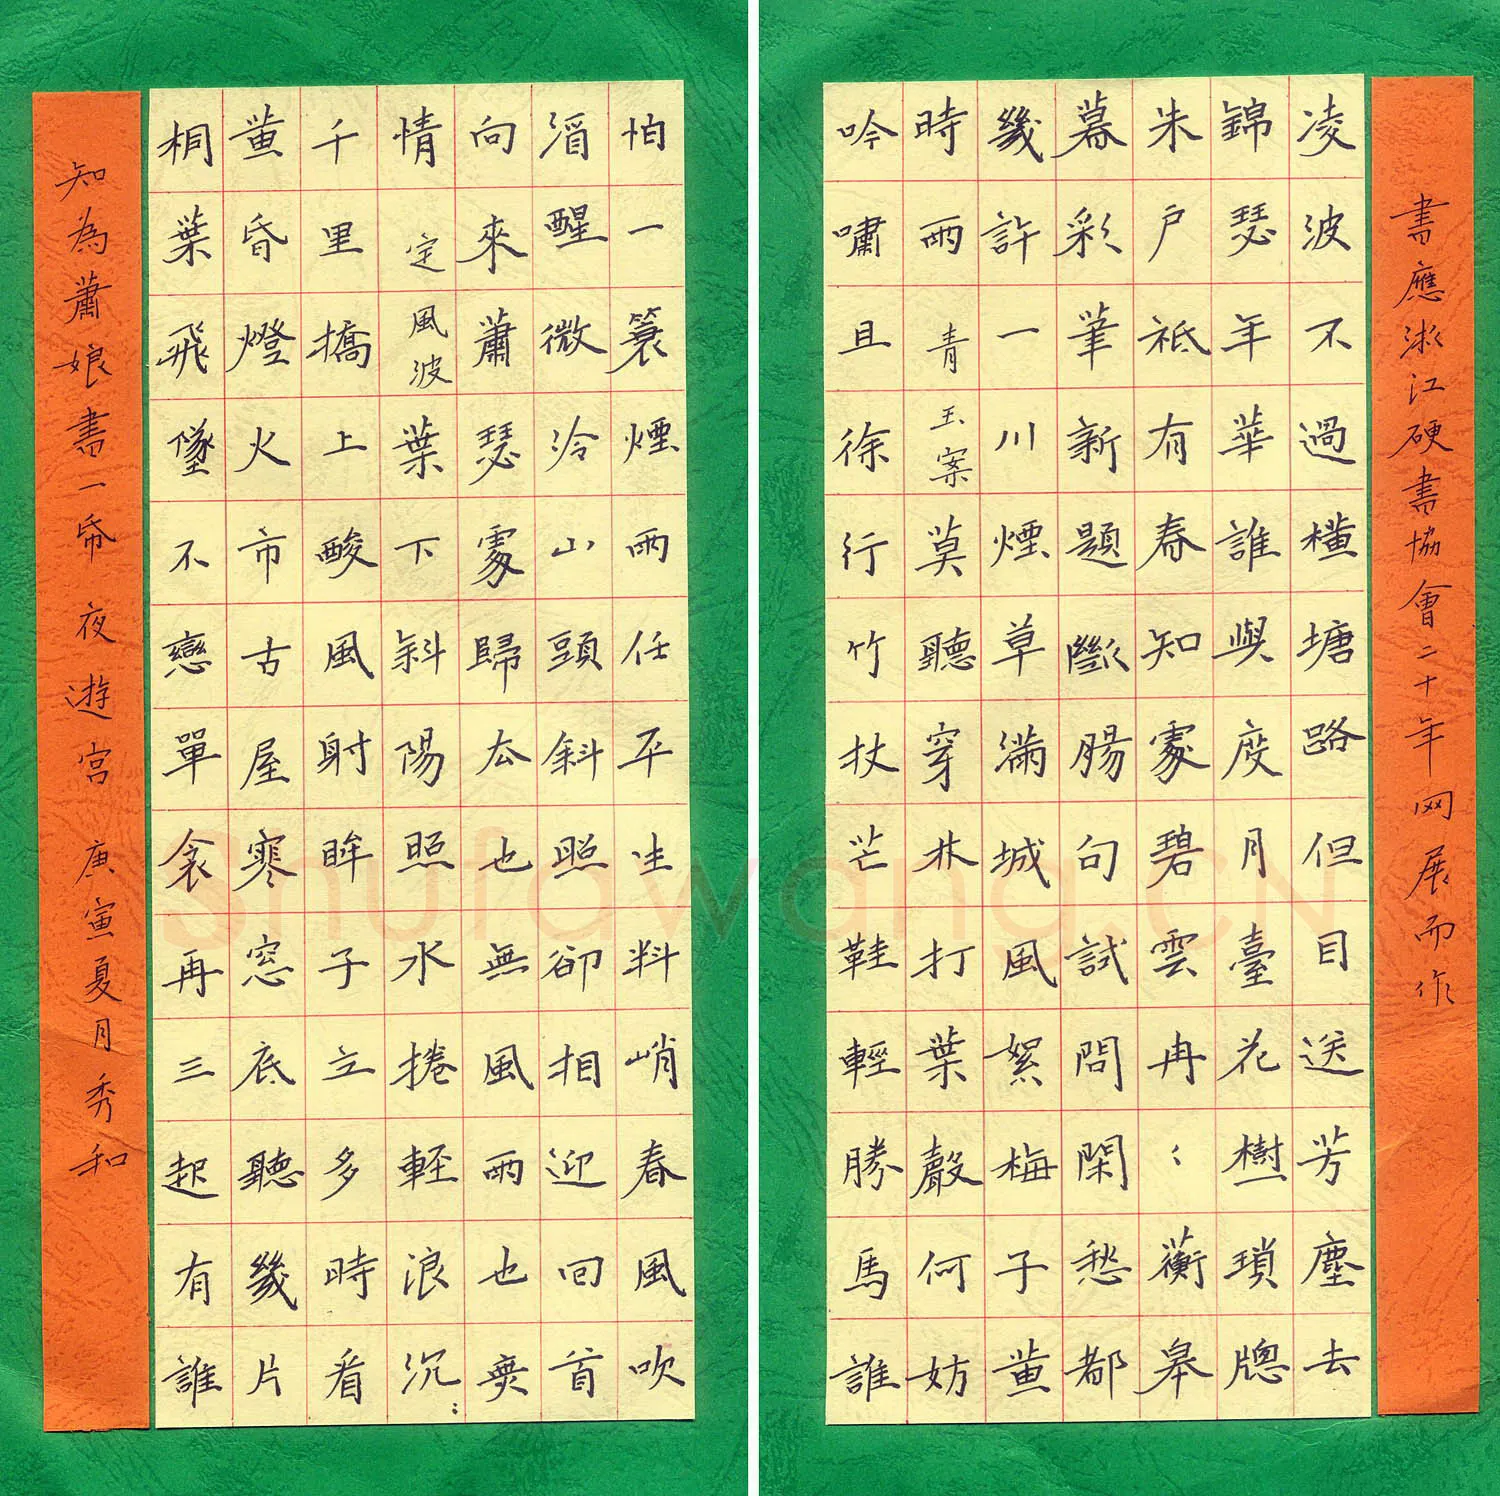 書應浙江硬書協會二十年网展而作
凌波不過橫塘路但目送芳塵去
錦瑟年華誰與度月臺花樹瑣牕
朱戶祗有春知處碧雲冉〻蘅皋
暮彩筆新題斷腸句試問閑愁都
幾許一川煙草滿城風絮梅子黃
時雨 青玉案 莫聽穿林打葉聲何妨
吟嘯且徐行竹杖芒鞋輕勝馬誰
怕一蓑煙雨任平生料峭春風吹
酒醒微冷山頭斜照卻相迎回首
向來蕭瑟處歸去也無風雨也無
情 定風波 葉下斜陽照水捲輕浪沉〻
千里橋上酸風射眸子立多時看
黃昏燈火市古屋寒窓底聽幾片
桐葉飛墜不戀單衾再三起有誰
知為蕭娘書一帋 夜遊宮 庚寅夏月秀和
Shufawang.CN